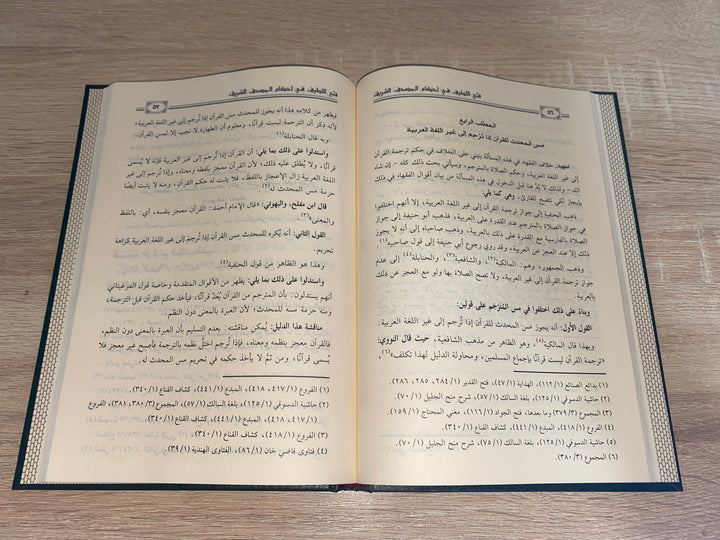 فتح اللطيف في أحكام المصحف الشريف
٥٦
المطلب الرابع
مس المحدث للقرآن إذا تُرجم إلى غير اللغة العربية
تمهيد: خلاف الفقهاء في هذه المسألة ينبني على الخلاف في حكم ترجمة القرآن
إلى غير العربية، وحكم الصلاة بالمترجم، وسيأتي بحث ذلك كله - إن شاء
الله - ولذلك لا بُدَّ هنا قبل الدخول في هذه المسألة من بيان أقوال الفقهاء في ذلك
بإيجاز لكي تتضح للقارئ، وهي كما يلي:
ذهب الحنفية إلى جواز ترجمة القرآن إلى غير اللغة العربية، إلا أنهم اختلفوا
في جواز الصلاة بالمترجم عند القدرة على العربية، فذهب أبو حنيفة إلى جواز
الصلاة بالفارسية مع القدرة على ذلك بالعربية، وذهب صاحباه إلى أنه لا يجوز
ذلك إلا عند العجز عن العربية، وقد روي رجوع أبي حنيفة إلى قول صاحبيه(١)
وذهب الجمهور؛ وهم: المالكية(٢)، والشافعية(٣)، والحنابلة(٤) إلى عدم
جواز ترجمة القرآن إلى غير العربية، ولا تصح الصلاة بها ولو مع العجز عن ذلك
بالعربية.
وبناءً على ذلك اختلفوا في مس المُتَرجَم على قولين:
القول الأول: أنه يجوز مس المحدث للقرآن إذا تُرجم إلى غير اللغة العربية.
وبهذا قال المالكية(٥)، وهو الظاهر من مذهب الشافعية، حيث قال النووي:
«ترجمة القرآن ليست قرآنًا بإجماع المسلمين، ومحاولة الدليل لهذا تكلف»(٦)
(١) بدائع الصنائع (١١٢/١)، الهداية (٤٧/١)، فتح القدير (٢٨٤/١، ٢٨٥، ٢٨٦).
(٢) حاشية الدسوقي (١٢٥/١)، بلغة السالك (٥٧/١)، شرح منح الجليل (٧٠/١).
(٣) المجموع (٣٧٩/٣) وما بعدها، فتح الجواد (١١٦/١)، مغني المحتاج (١٥٩/١).
(٤) الفروع (٤١٨/١)، المبدع (٤٤١/١)، كشاف القناع (٣٤٠/١).
(٥) حاشية الدسوقي (١٢٥/١)، بلغة السالك (٧٥/١)، شرح منح الجليل (٧٠/١).
(٦) المجموع (٣٨٠/٣).
فتح اللطيف في أحكام المصحف الشريف
٥٧
ويظهر من كلامه هذا أنه يجوز للمحدث مس القرآن إذا تُرجم إلى غير اللغة العربية؛
لأنه ذكر أن الترجمة ليست قرآنًا، ومعلوم أن الطهارة لا تجب إلا لمس القرآن.
وبه قال الحنابلة(١).
واستدلوا على ذلك بما يلي: أن القرآن إذا تُرجم إلى غير العربية فإنَّه لا يُسمَّى
قرآنًا، ولا يُطلق عليه ذلك؛ لأن القرآن معجز بلفظه ومعناه. وإذا تُرجم إلى غير
اللغة العربية زال الإعجاز باللفظ، فلا يثبت له حكم القرآن، ومنه لا يثبت أيضًا
حرمة مس المحدث له(٢).
قال ابن مفلح، والبهوتي: «قال الإمام أحمد: القرآن معجز بنفسه، أي: باللفظ
والمعنى»(٣).
القول الثاني: أنه يُكره للمحدث مس القرآن إذا تُرجم إلى غير اللغة العربية كراهة
تحريم.
وهذا هو الظاهر من قول الحنفية(٤).
واستدلوا على ذلك بما يلي: يظهر من الأقوال المتقدمة وخاصة قول المرغيناني
أنهم يستدلون: بأن المترجم من القرآن يُعدُّ قرآنًا، فيأخذ حكم القرآن قبل الترجمة،
ومنه حرمة مسه للمحدث؛ لأن العبرة بالمعنى دون النظم.
مناقشة هذا الدليل: يُمكن مناقشته: بعدم التسليم بأن العبرة بالمعنى دون النظم،
فالقرآن معجز بنظمه ومعناه، فإذا تُرجم اختلَّ نظمه بالترجمة فأصبح غير معجز فلا
يُسمى قرآنًا، ومن ثمَّ لا يأخذ حكمه في تحريم مس المحدث له.
(١) الفروع (٤١٧/١، ٤١٨)، المبدع (٤٤١/١)، كشاف القناع (٣٤٠/١).
(٢) حاشية الدسوقي (١٢٥/١)، بلغة السالك (٥٧/١)، المجموع (٣٨٠/٣، ٣٨١)، الفروع
(٤١٧/١، ٤١٨)، المبدع (٤٤١/١)، كشاف القناع (٣٤٠/١).
(٣) الفروع (٤١٨/١)، كشاف القناع (٣٤٠/١).
(٤) فتاوى قاضي خان (٨٦/١)، الفتاوى الهندية (٣٩/١).